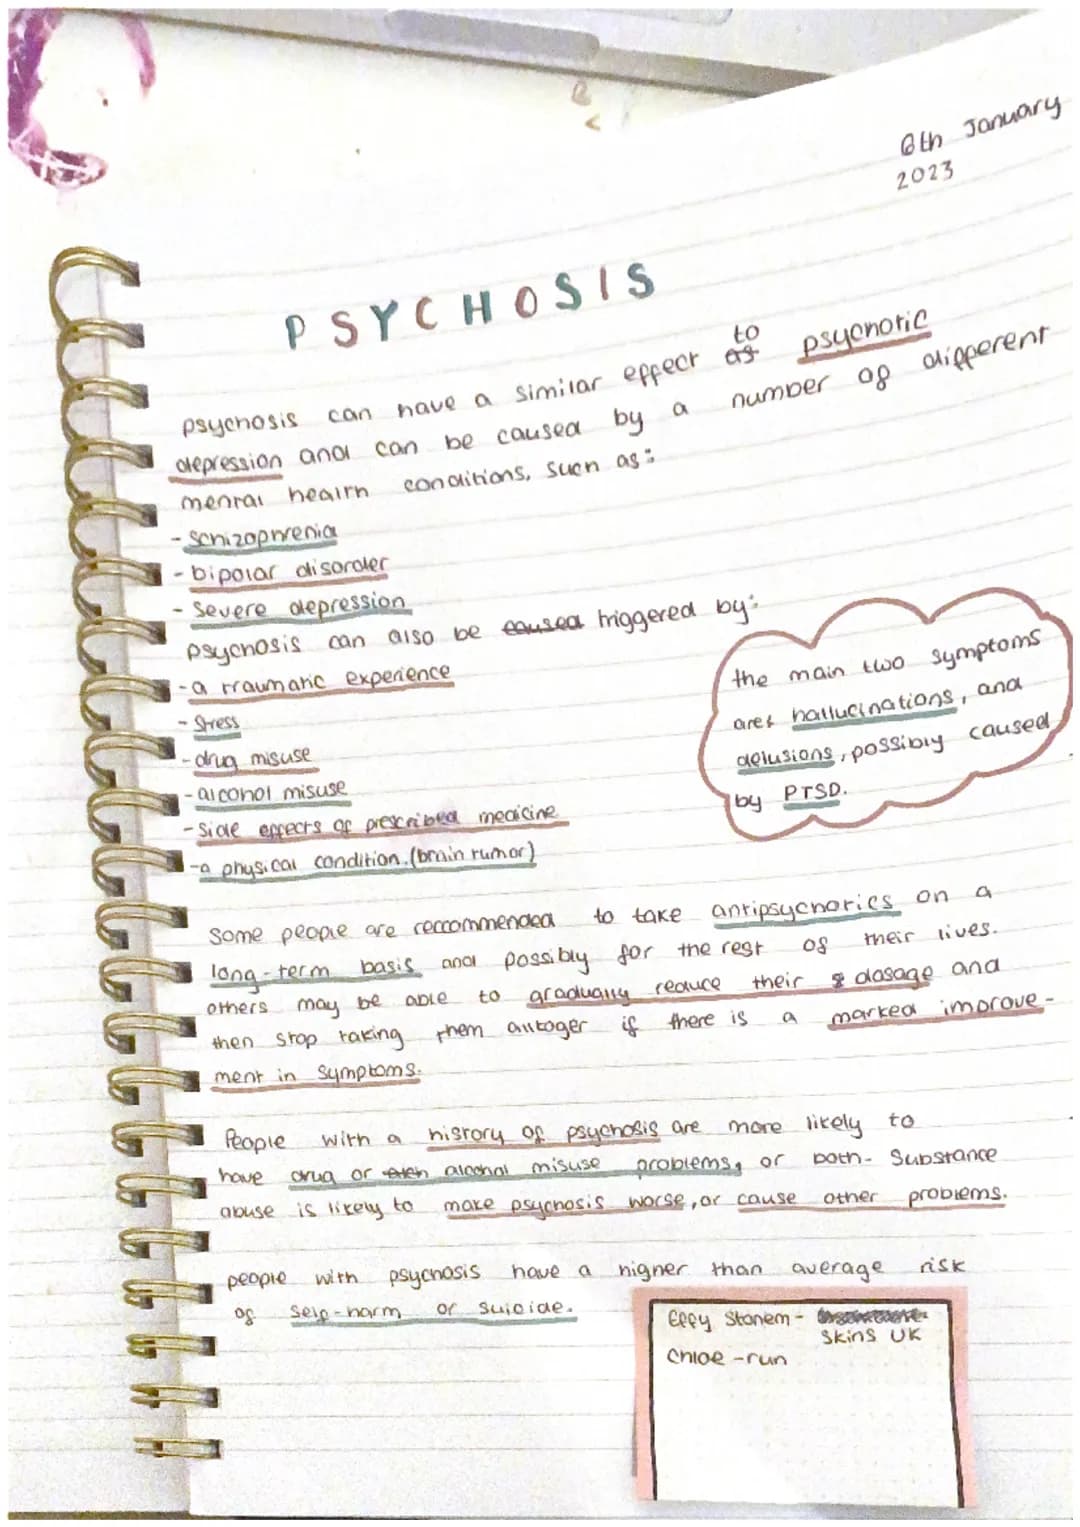 6th January
2023
PSYCHOSIS
psychosis can have a similar effect to psychotic
depression and can be caused by a number of different
mental health conditions, such as:
- schizophrenia
- bipolar disorder
- severe depression
psychosis can also be caused triggered by:
- a traumatic experience
- stress
- drug misuse
- alcohol misuse
- side effects of prescribed medicine
- a physical condition. (brain tumor)
the main two symptoms
are hallucinations, and
delusions, possibly caused
by PTSD.
some people are reccommended to take antipsychotics on a
long-term basis and possibly for the rest of their lives.
others may be able to gradually reduce their dosage and
then stop taking them alltoger if there is a marked improve-
ment in symptoms.
People with a history of psychosis are more likely to
have drug or alcohol misuse problems, or both. Substance
abuse is likely to make psychosis worse, or cause other problems.
people with psychosis have a higher than average risk
of self-harm or suicide.
Effy Stonem -
Skins UK
Chloe - run